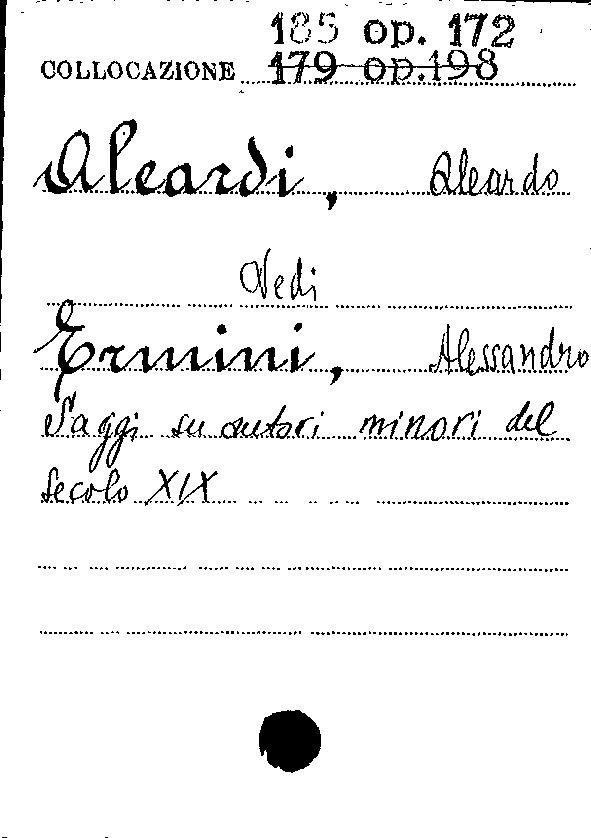 185 op. 172
COLLOCAZIONE 179 op.198
Aleardi, Aleardo
Vedi
Ermini, Alessandro
Saggi su autori minori del
secolo XIX